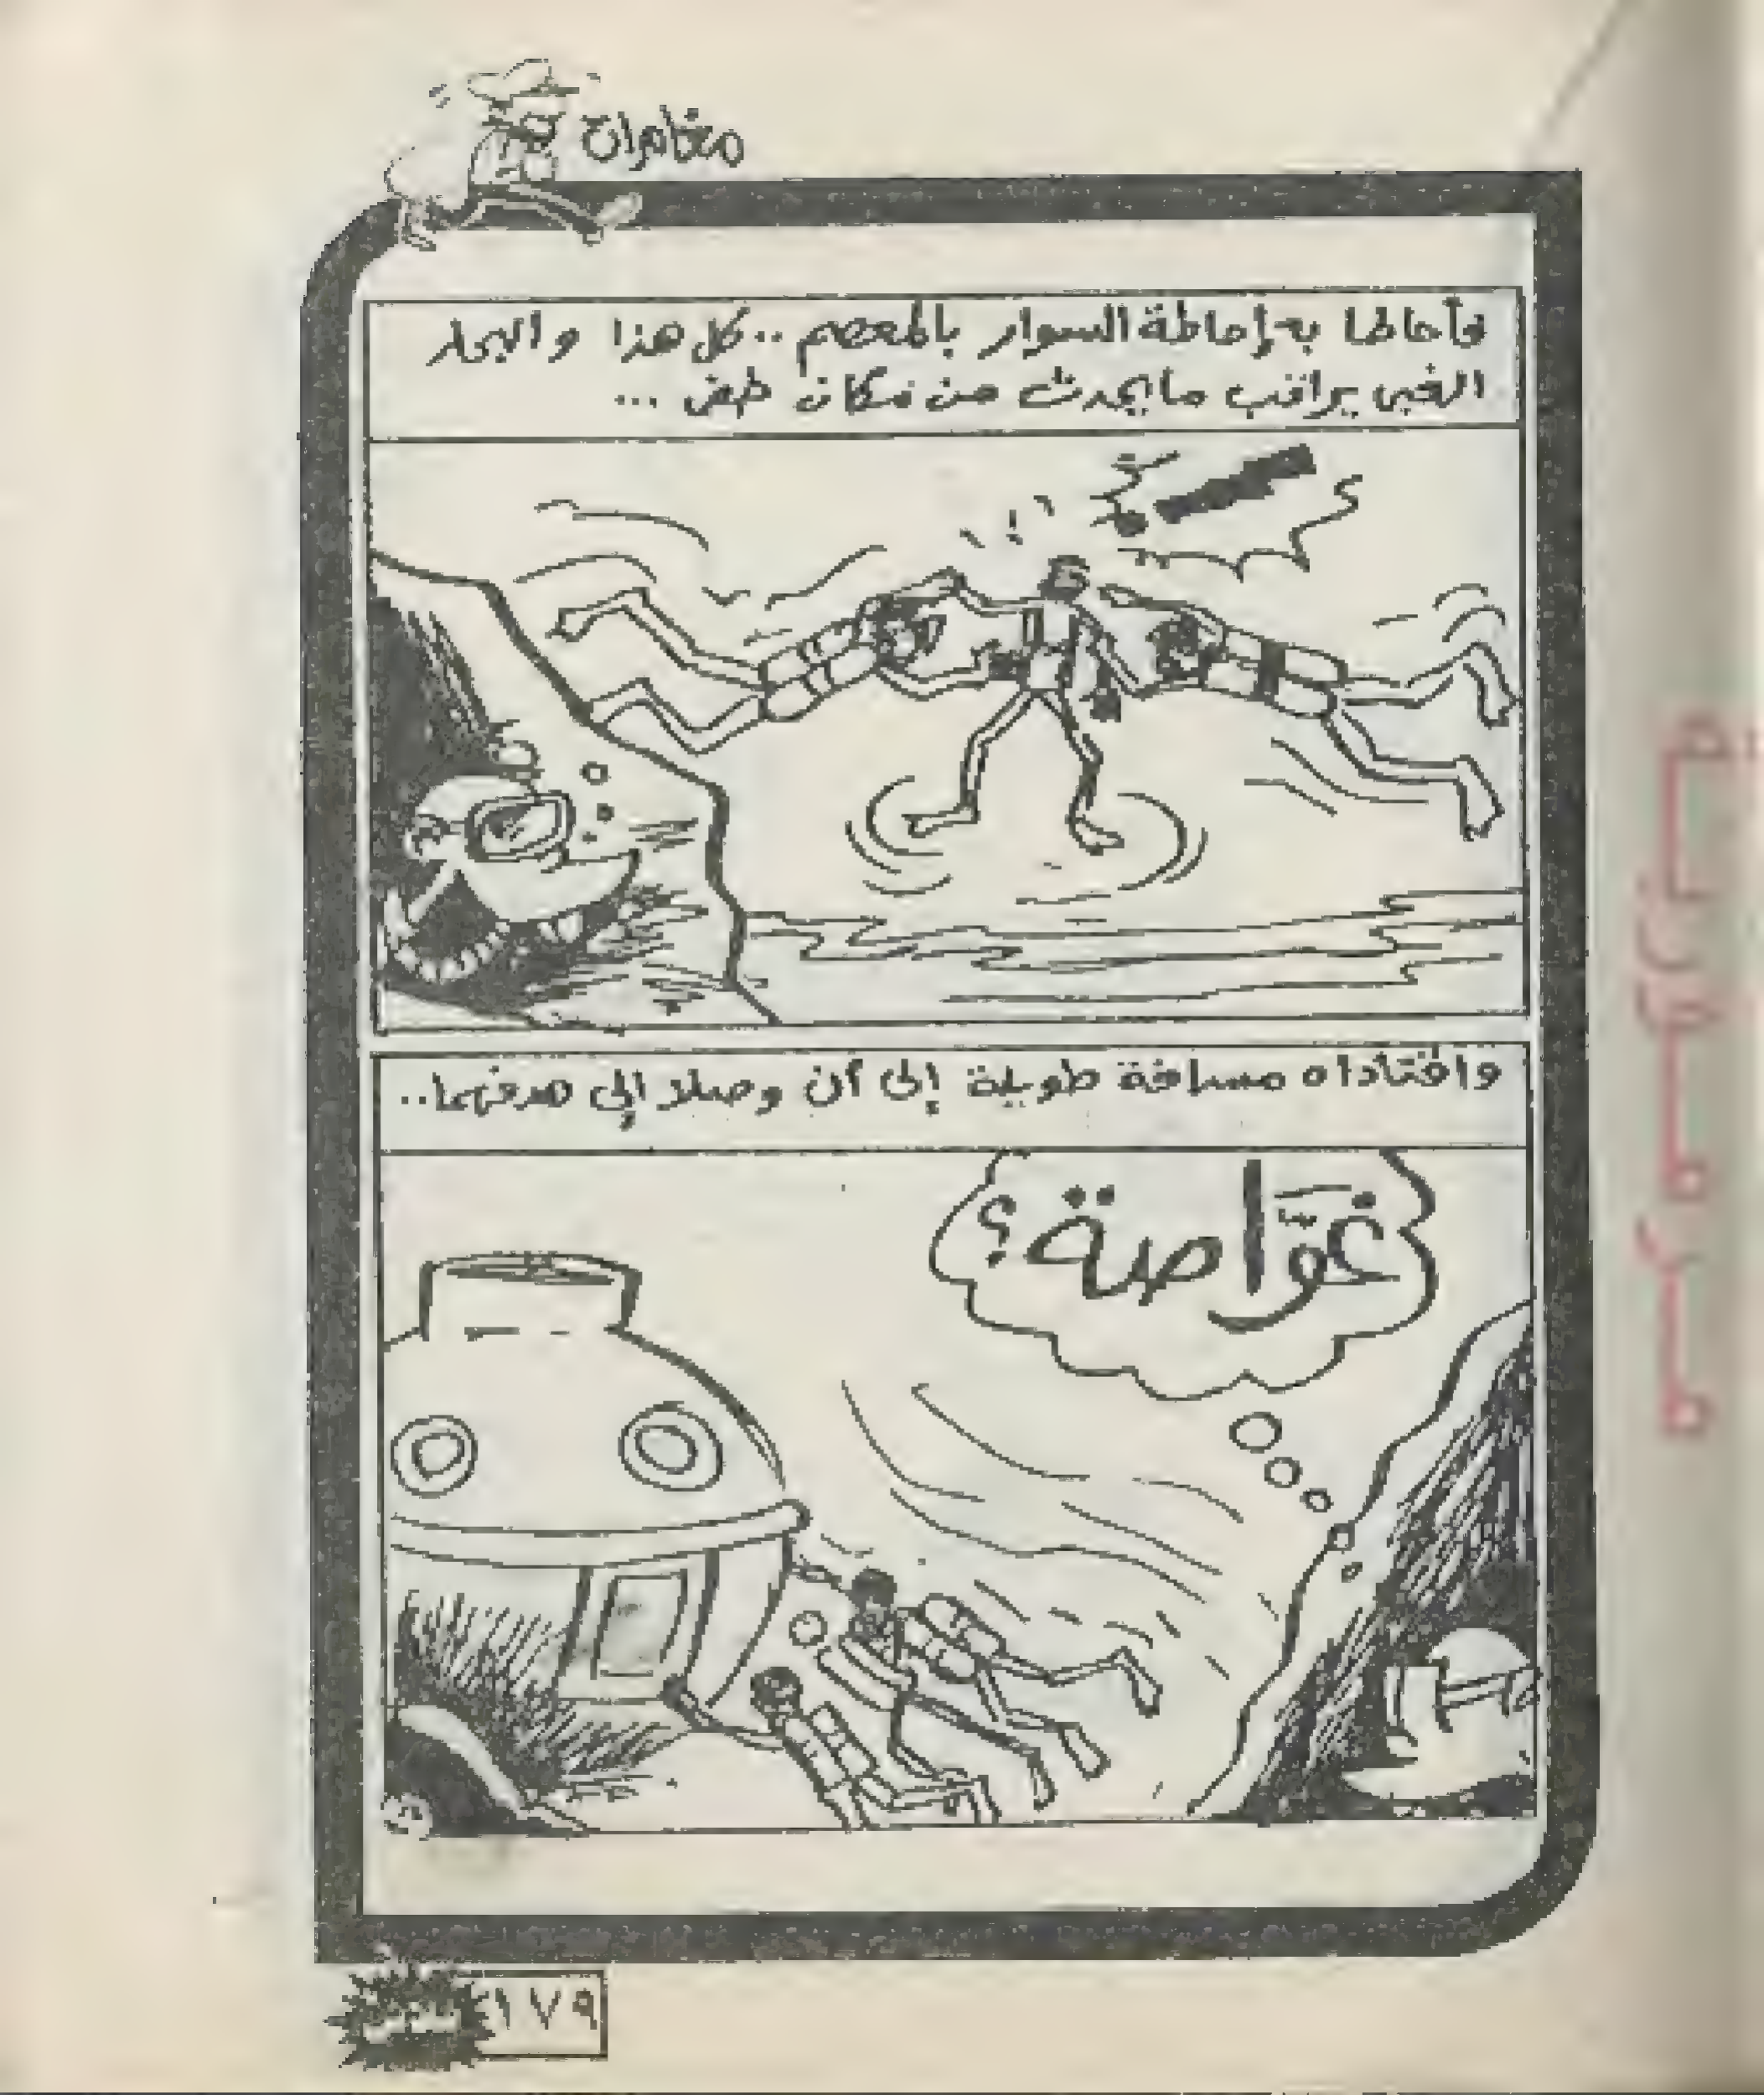 مغامرات
فأحاطا به إحاطة السوار بالمعصم .. كل هذا والبحار
الغبى يراقب ما يحدث من مكان خفى ...
واقتاداه مسافة طويلة إلى أن وصلا إلى هدفهما..
غوَّاصة ؟
١٧٩